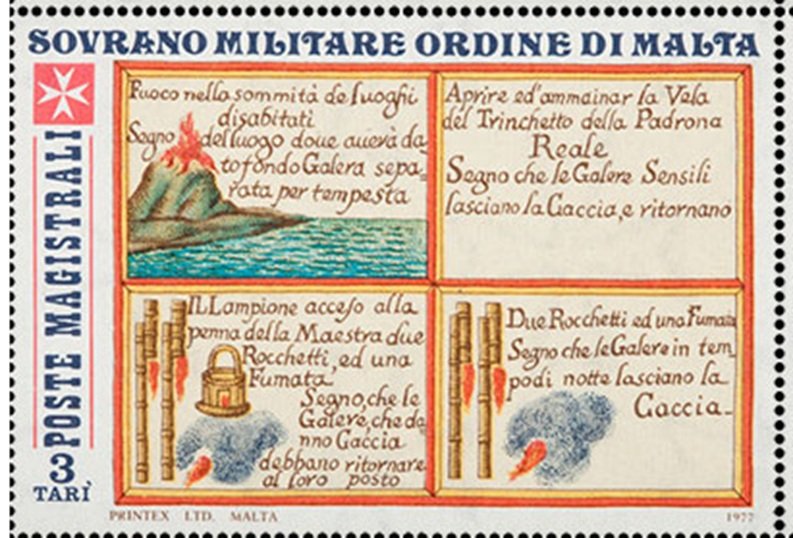 SOVRANO MILITARE ORDINE DI MALTA
POSTE MAGISTRALI
3
TARÌ
Fuoco nella sommità de luoghi
disabitati
Segno del luogo doue auerà da,
to fondo Galera sepa,
rata per tempesta
Aprire ed'ammainar la Vela
del Trinchetto della Padrona
Reale
Segno che le Galere Sensili
lasciano la Caccia, e ritornano
IL Lampione acceso alla
penna della Maestra due
Rocchetti, ed una
Fumata
Segno, che le
Galere, che da
nno Caccia
debbano ritornare
al loro posto
Due Rocchetti ed una Fumata
Segno che le Galere in tem,
po di notte lasciano la
Caccia.
PRINTEX LTD. MALTA
1977